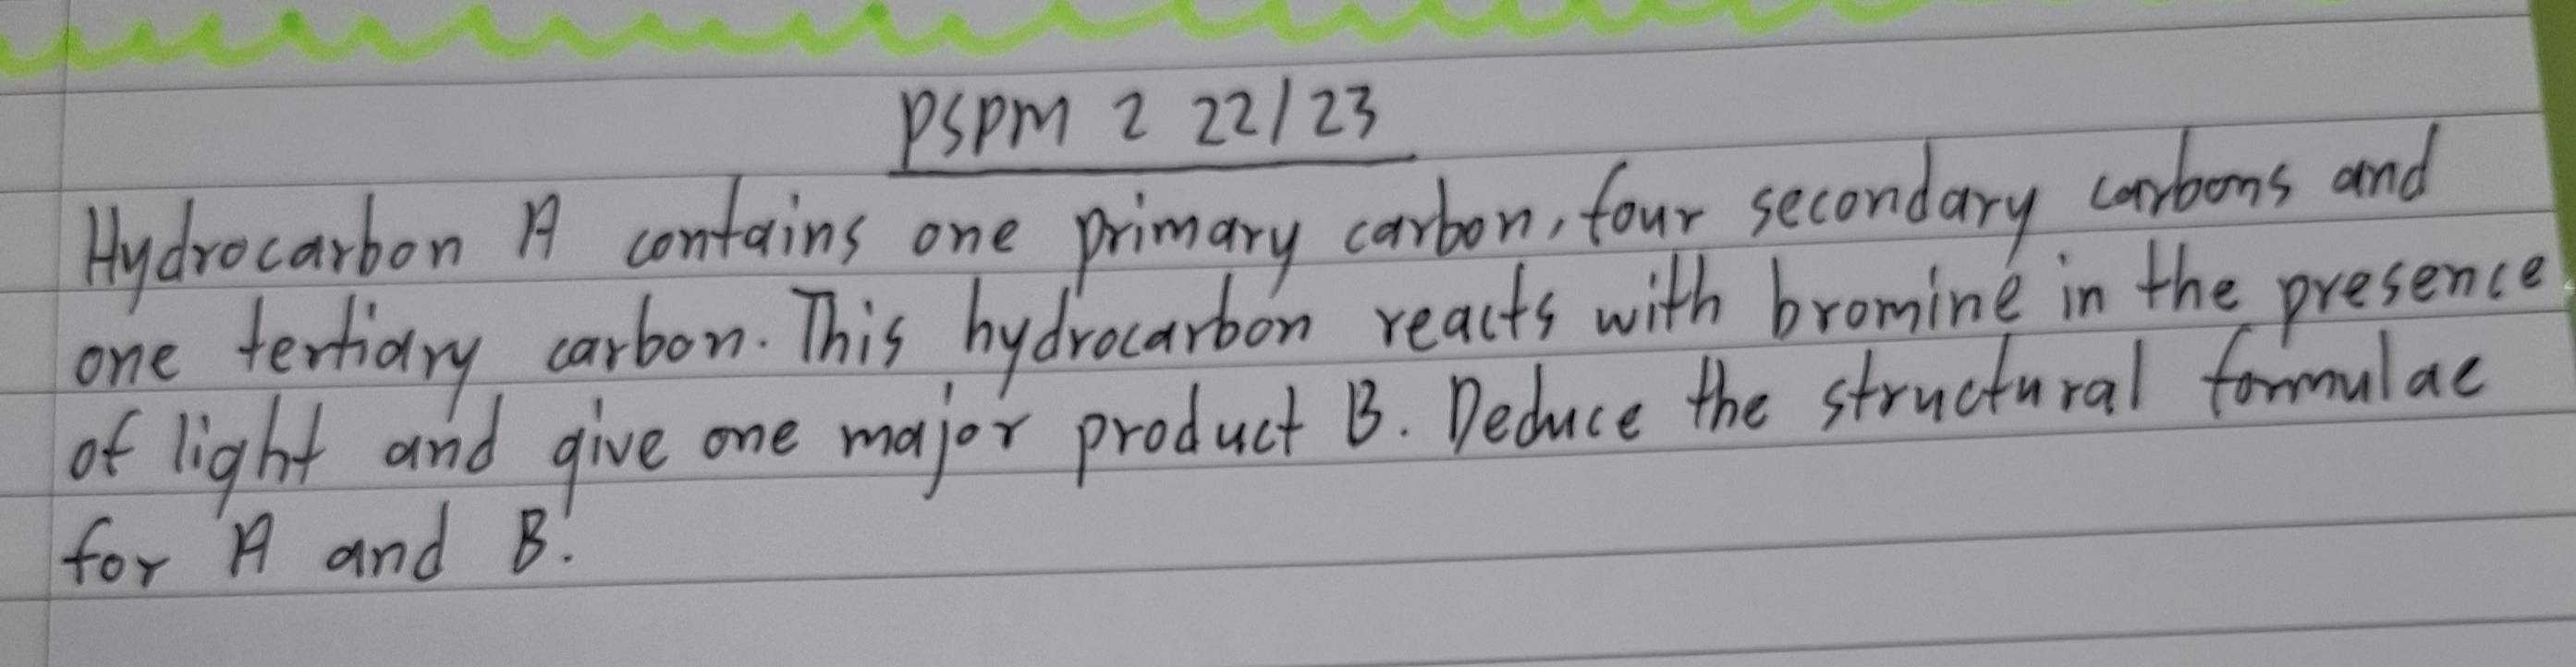 PSPM 2 22/23
Hydrocarbon A contains one primary carbon, four secondary carbons and
one tertiary carbon. This hydrocarbon reacts with bromine in the presence
of light and give one major product B. Deduce the structural formulae
for A and B.